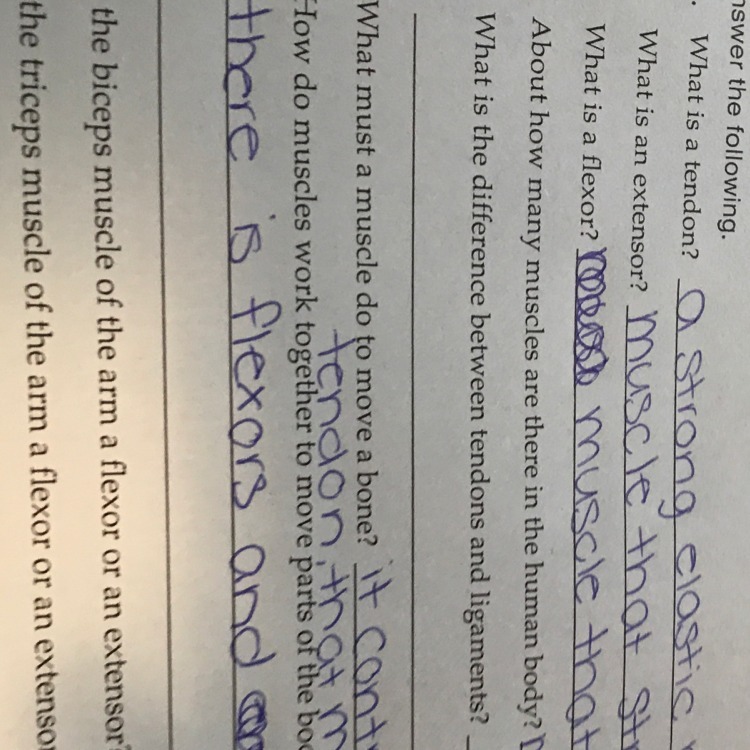 nswer the following.
. What is a tendon? a strong elastic
What is an extensor? muscle that st
What is a flexor? muscle that
About how many muscles are there in the human body?
What is the difference between tendons and ligaments?
What must a muscle do to move a bone? it cont
tendon that m
How do muscles work together to move parts of the bo
there is flexors and
the biceps muscle of the arm a flexor or an extensor?
the triceps muscle of the arm a flexor or an extenso